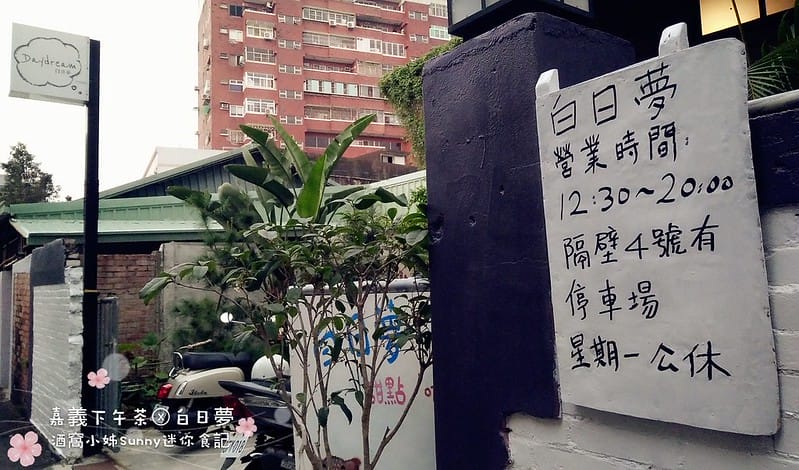 Daydream
白日夢
白日夢
營業時間:
12:30~20:00
隔壁4號有
停車場
星期一公休
白日夢
甜點
嘉義下午茶ⓧ白日夢
酒窩小姊Sunny迷你食記